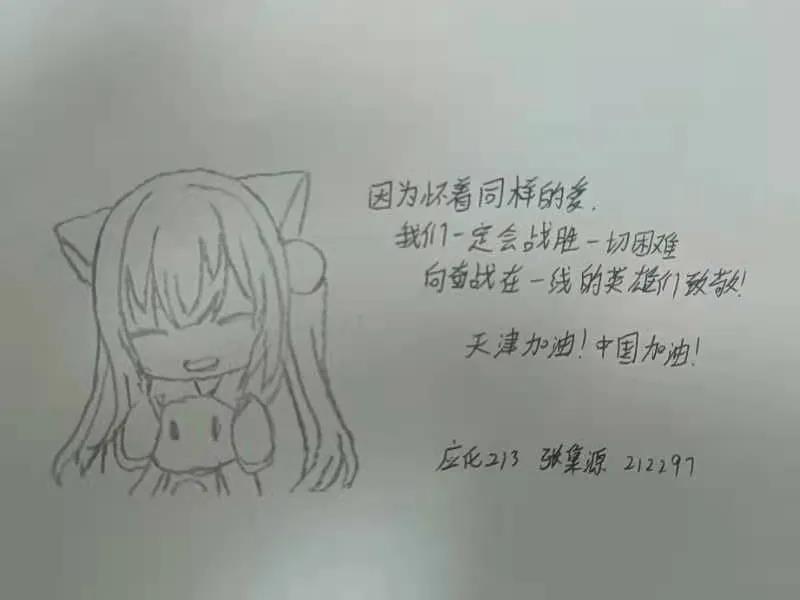 因为怀着同样的爱.
我们一定会战胜一切困难
向奋战在一线的英雄们致敬!
天津加油!中国加油!
应化213 张集源 212297